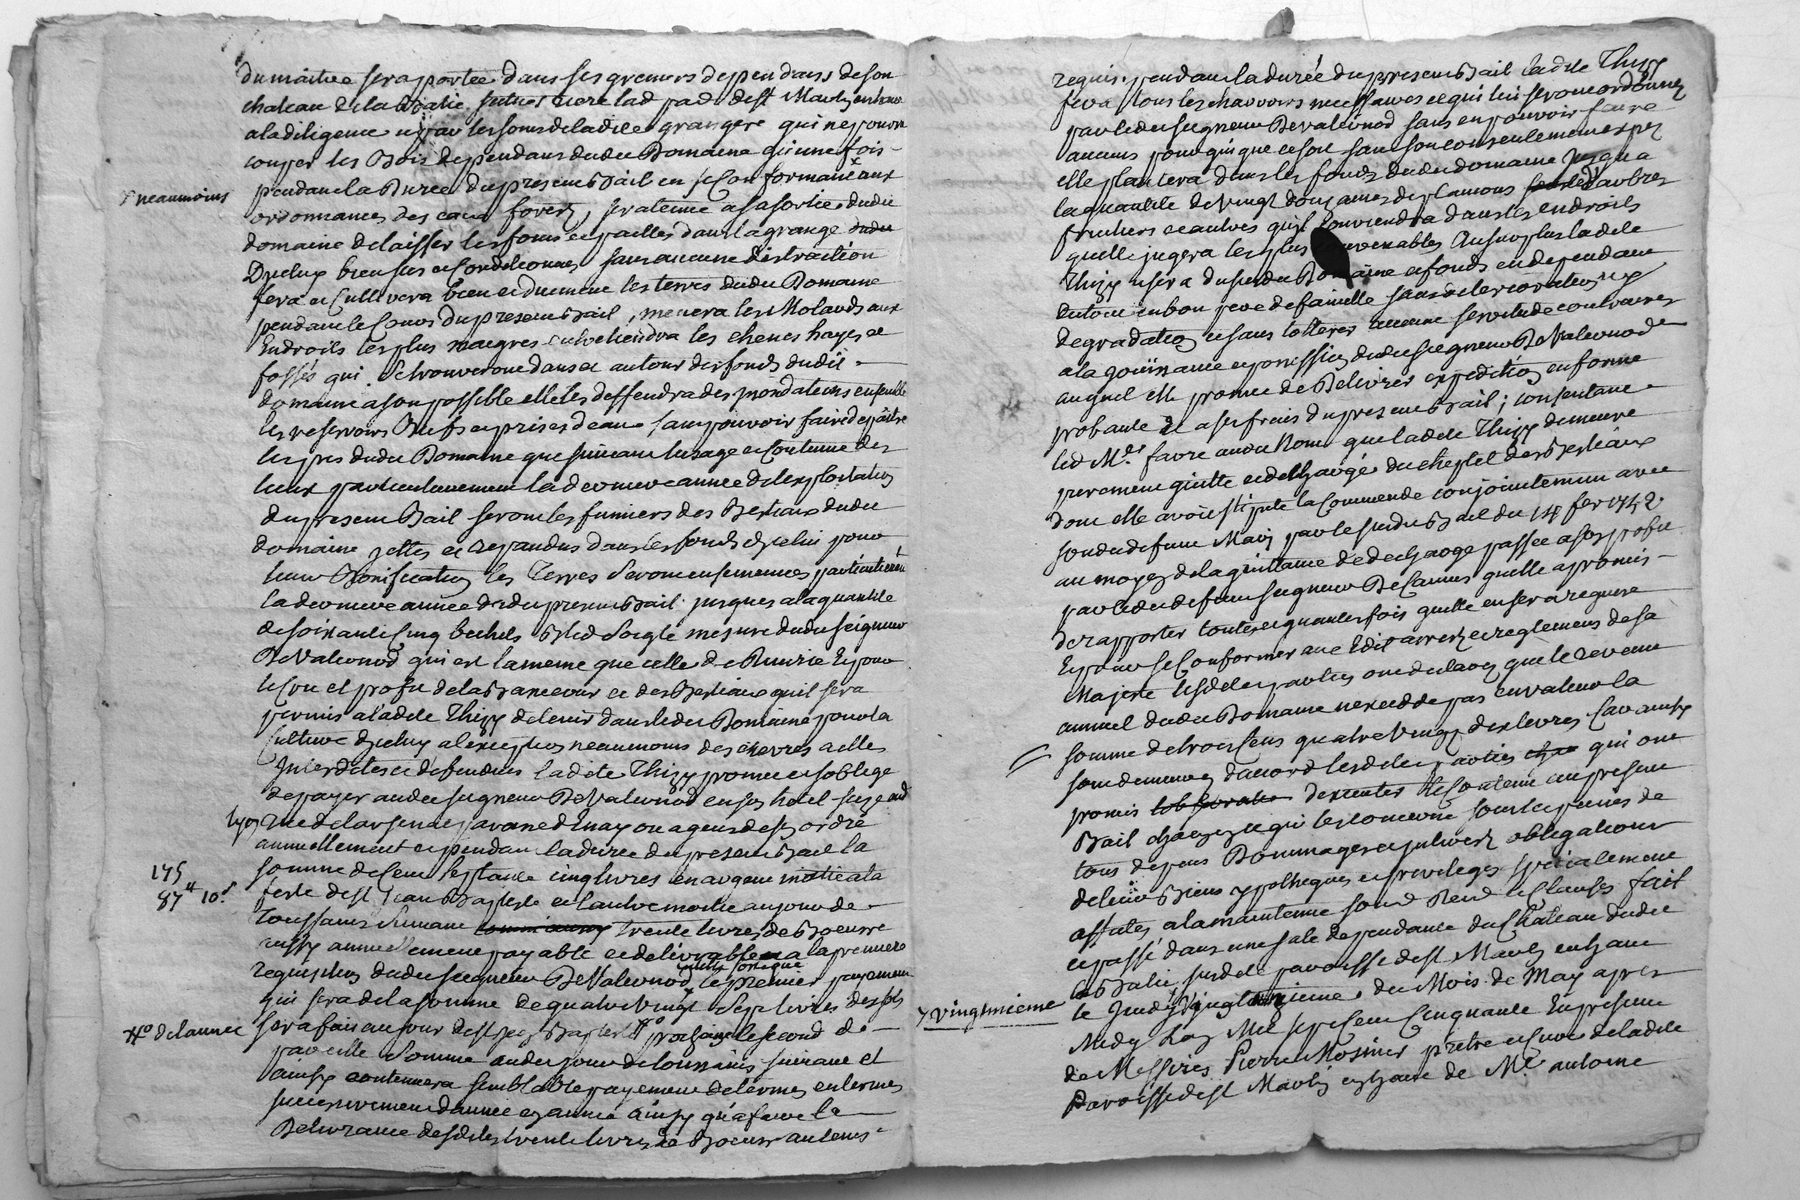 du maitre sera portée dans ses greniers dependans de son
chateau de la Batie susdit par de st Martin en haut
a la diligence et par les soins de la dite grangere qui ne pourra
couper les Bois dependans dudit Domaine qu'une fois
x neanmoins
pendant la Durée du present Bail en se Conformant aux
ordonnances des eaux forets, sera tenue a sa sortie dudit
domaine de laisser les foins et pailles dans la grange
D'icelluy bien sur et Conditionnés sans aucune distraction
fera et Cultivera bien et duement les terres dudit Domaine
pendant le Cours du present Bail, menera les Molards aux
Endroits les plus maigres entretiendra les chenes hayes et
fossés qui se trouveront dans et autour des fonds dudit
domaine a son possible elle les deffendra des inondations ensemble
les reservoirs Biefs et prises d'eau sans pouvoir faire depaitre
les prés dudit Domaine que suivant lusage et Coutume des
lieux particulierement la derniere année de lexploitation
du present Bail seront les fumiers des Bestiaux dudit
domaine jettés et Repandus dans les fonds d'icelui pour
leur Bonification les Terres seront ensemencées particulierem
la derniere année dudit present Bail jusques a la quantité
de soixante Cinq bichets Bled Soigle mesure dudit seigneur
De Valernod qui est la meme que celle de Et pour
le Cru et profit de la Bassecour et des Bestiaux quil sera
permis a ladite Thizy de tenir dans ledit Domaine pour la
Culture d'icelluy a lexception neanmoins des chevres a elle
Interdites et defendues ladite Thizy promet et soblige
de payer audit seigneur De Valernod en son hotel size aud
lyon
Rue de larsenal paroisse d'Enay ou a gens de son ordre
annuellement et pendant la durée du present Bail la
175
somme de Cent septante cinq livres en argent moitié a la
87 10
feste de st Jean Baptiste et l'autre moitié au jour de
Toussaints suivant trente livres de Boeurre
aussy annuellement payable et delivrable a la premiere
requisition dudit seigneur De Valernod le premier payement
qui sera de la somme de quatre vingt sept livres dix sols
de lannée
sera fait au jour de st Jean Baptiste prochain le second de
pareille somme audit jour de toussaints suivant et
ainsy continuera semblable payement de termes en termes
successivement d'année en année ainsy qu'a faire la
Delivrance desdites trente livres de Boeurre au tems
requis pendant la durée du present Bail ladite Thizy
fera tous les charrois necessaires et qui lui seront ordonnés
par ledit seigneur De Valernod sans en pouvoir faire
aucuns pour qui que ce soit sans son consentement exprez
elle plantera dans les fonds dudit domaine jusqu'a
la quantité de vingt douzaines de plançons d'arbres
fruitiers et autres quil conviendra dans les endroits
quelle jugera les plus convenables Au surplus ladite
Thizy usera du susdit Domaine et fonds en dependant
le tout en bon pere de famille sans deterioration ny
degradation et sans tollerer aucune servitude contraire
a la jouissance et possession dudit seigneur De Valernod
auquel elle promet de Delivrer expedition en forme
probante et a ses frais du present Bail; consentant
led Mre favre audit Nom que ladite Thizy demeure
purement quitte et dechargée du cheptel des Bestiaux
dont elle avoit stipulé la Commende conjointement avec
sondit defunt Mary par le susdit Bail du 14 fev 1742
au moyen de la quittance de decharge passée a son profit
par ledit defunt seigneur De quelle a promis
de rapporter toutes et quantes fois quelle en sera requise
Et pour se Conformer aux Edit arrets et reglemens de Sa
Majesté lesdites parties ont declaré que le revenu
annuel dudit Domaine n'excedde pas en valeur la
somme de trois cens quatre vingt dix livres Car ainsy
sont demeurés d'accord lesdites parties qui ont
promis d'executer le Contenu au present
Bail chacun en ce qui les concerne sous les peines de
tous depens Dommages et interets obligations
de leurs Biens ypotheques et privileges specialement
affectés a la maintenue soumis Rend et Clauses fait
et passé dans une sale dependante du Chateau dudit
la Batie susdite parroisse de st Martin en haut
x vingtnieme
le Jeudy du Mois de May apres
Midy Lan Mil sept Cent Cinquante En presence
de Messires Pierre Mosnier pretre et curé de ladite
Parroisse de st Martin en haut de Mre antoine